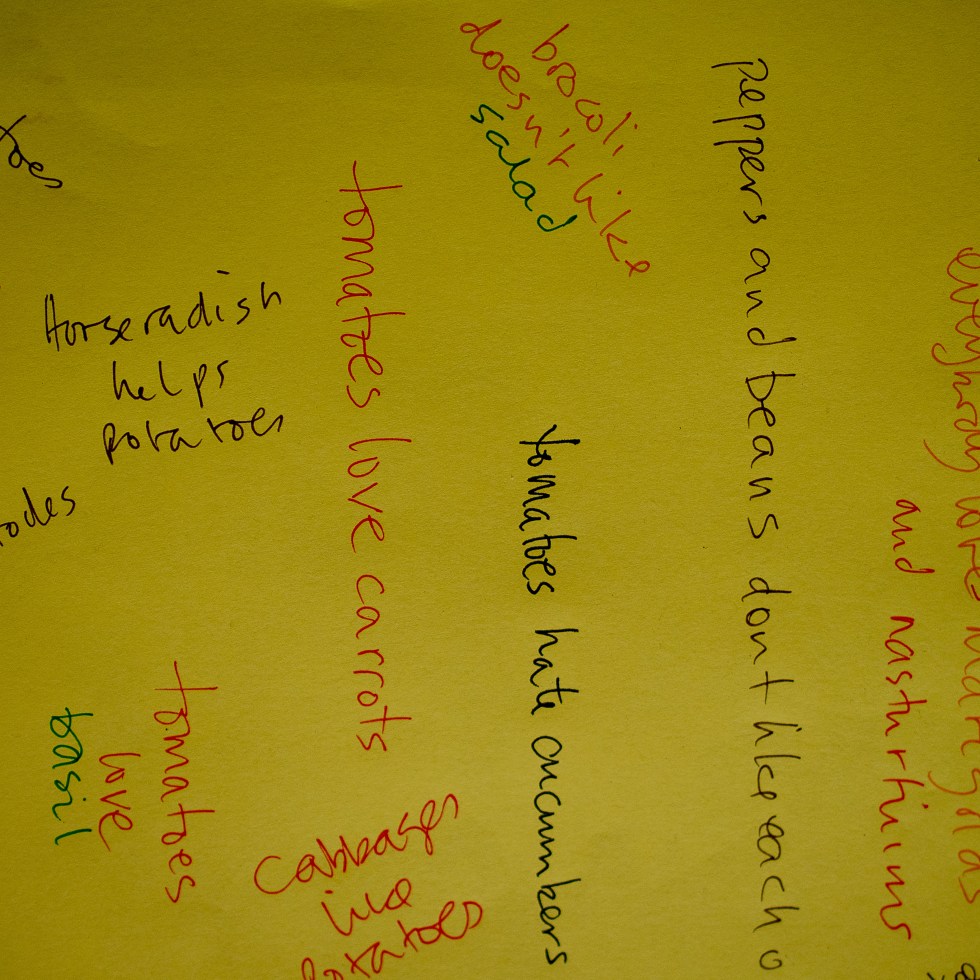 everybody loves marigolds
and nasturtiums
peppers and beans dont like each o
brocoli
doesn't like
salad
tomatoes hate cucumbers
tomatoes love carrots
toes
Horseradish
helps
potatoes
odes
tomatoes
love
basil
Cabbages
like
potatoes